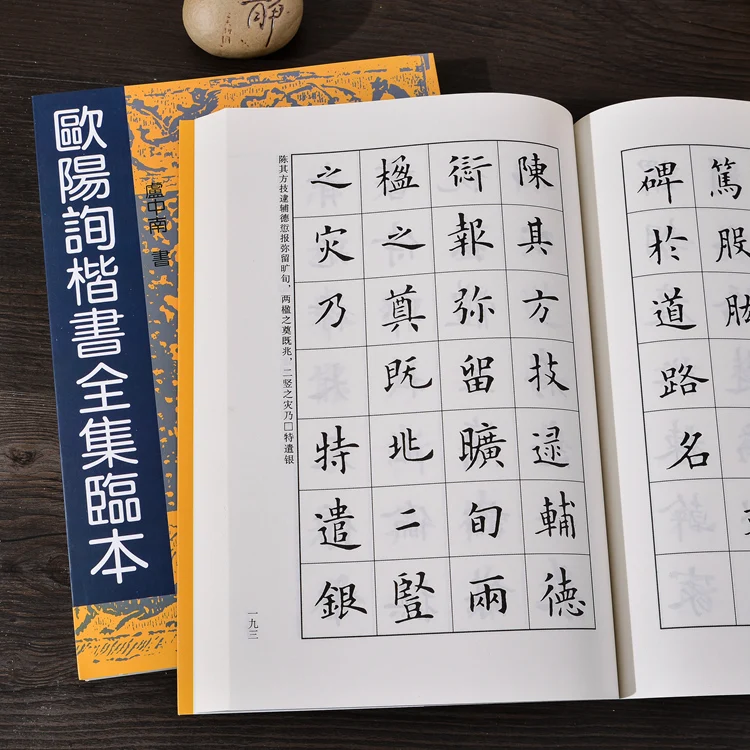 歐陽詢楷書全集臨本
盧中南 書
篤股肱
碑於道路名
陳其方技逮輔德
報弥留曠旬兩
楹之奠既兆二豎
之灾乃特遣銀
陈其方技逮辅德愆报弥留旷旬，两楹之奠既兆，二竖之灾乃□特遣银
一九三